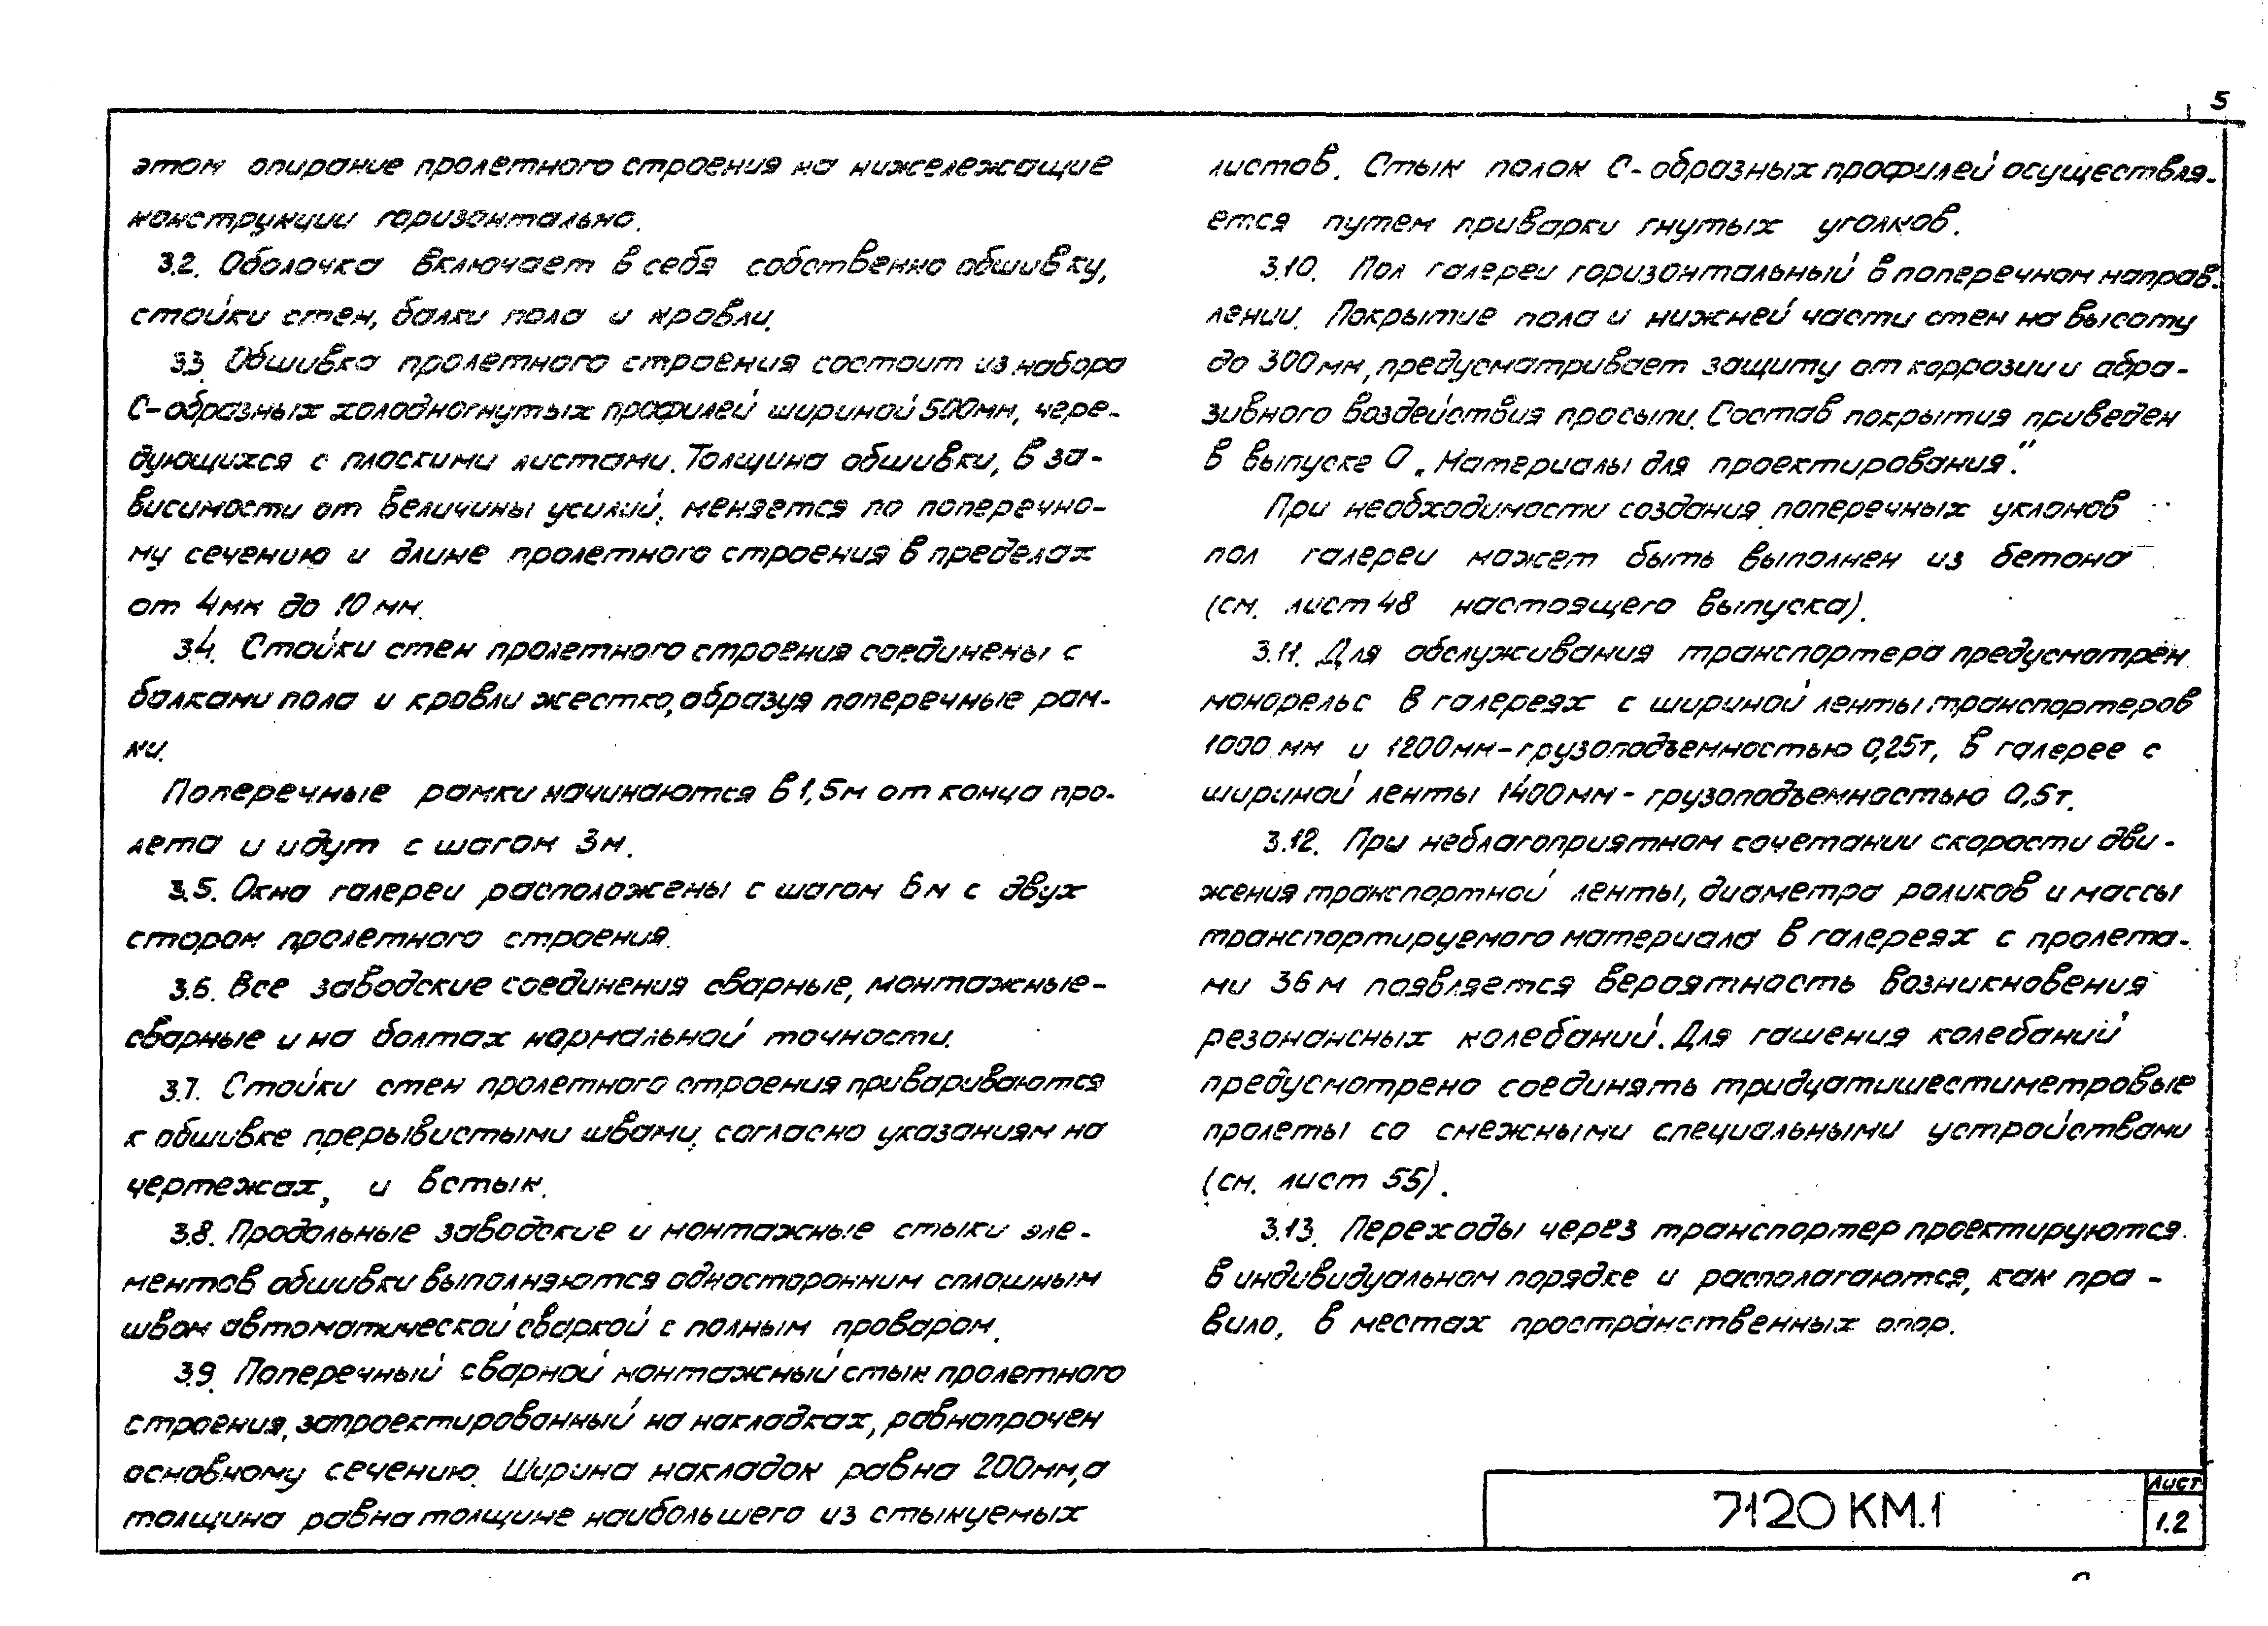 5
этом опирание пролетного строения на нижележащие
конструкции горизонтально.
3.2. Оболочка включает в себя собственно обшивку,
стойки стен, балки пола и кровли.
3.3. Обшивка пролетного строения состоит из набора
С-образных холодногнутых профилей шириной 500мм, чере-
дующихся с плоскими листами. Толщина обшивки, в за-
висимости от величины усилий, меняется по поперечно-
му сечению и длине пролетного строения в пределах
от 4мм до 10 мм.
3.4. Стойки стен пролетного строения соединены с
балками пола и кровли жестко, образуя поперечные рам-
ки.
Поперечные рамки начинаются в 1,5м от конца про-
лета и идут с шагом 3м.
3.5. Окна галереи расположены с шагом 6м с двух
сторон пролетного строения.
3.6. Все заводские соединения сварные, монтажные-
сварные и на болтах нормальной точности.
3.7. Стойки стен пролетного строения привариваются
к обшивке прерывистыми швами, согласно указаниям на
чертежах, и встык.
3.8. Продольные заводские и монтажные стыки эле-
ментов обшивки выполняются односторонним сплошным
швом автоматической сваркой с полным проваром.
3.9. Поперечный сварной монтажный стык пролетного
строения, запроектированный на накладках, равнопрочен
основному сечению. Ширина накладок равна 200мм, а
толщина равна толщине наибольшего из стыкуемых
листов. Стык полок С-образных профилей осуществля-
ется путем приварки гнутых уголков.
3.10. Пол галереи горизонтальный в поперечном направ-
лении. Покрытие пола и нижней части стен на высоту
до 300мм, предусматривает защиту от коррозии и абра-
зивного воздействия просыпи. Состав покрытия приведен
в выпуске 0 „Материалы для проектирования".
При необходимости создания поперечных уклонов
пол галереи может быть выполнен из бетона
(см. лист 48 настоящего выпуска).
3.11. Для обслуживания транспортера предусмотрен
монорельс в галереях с шириной ленты транспортеров
1000 мм и 1200мм-грузоподъемностью 0,25т, в галерее с
шириной ленты 1400мм - грузоподъемностью 0,5т.
3.12. При неблагоприятном сочетании скорости дви-
жения транспортной ленты, диаметра роликов и массы
транспортируемого материала в галереях с пролета-
ми 36м появляется вероятность возникновения
резонансных колебаний. Для гашения колебаний
предусмотрено соединять тридцатишестиметровые
пролеты со смежными специальными устройствами
(см. лист 55).
3.13. Переходы через транспортер проектируются
в индивидуальном порядке и располагаются, как пра-
вило, в местах пространственных опор.
7120 КМ.1
Лист
1.2